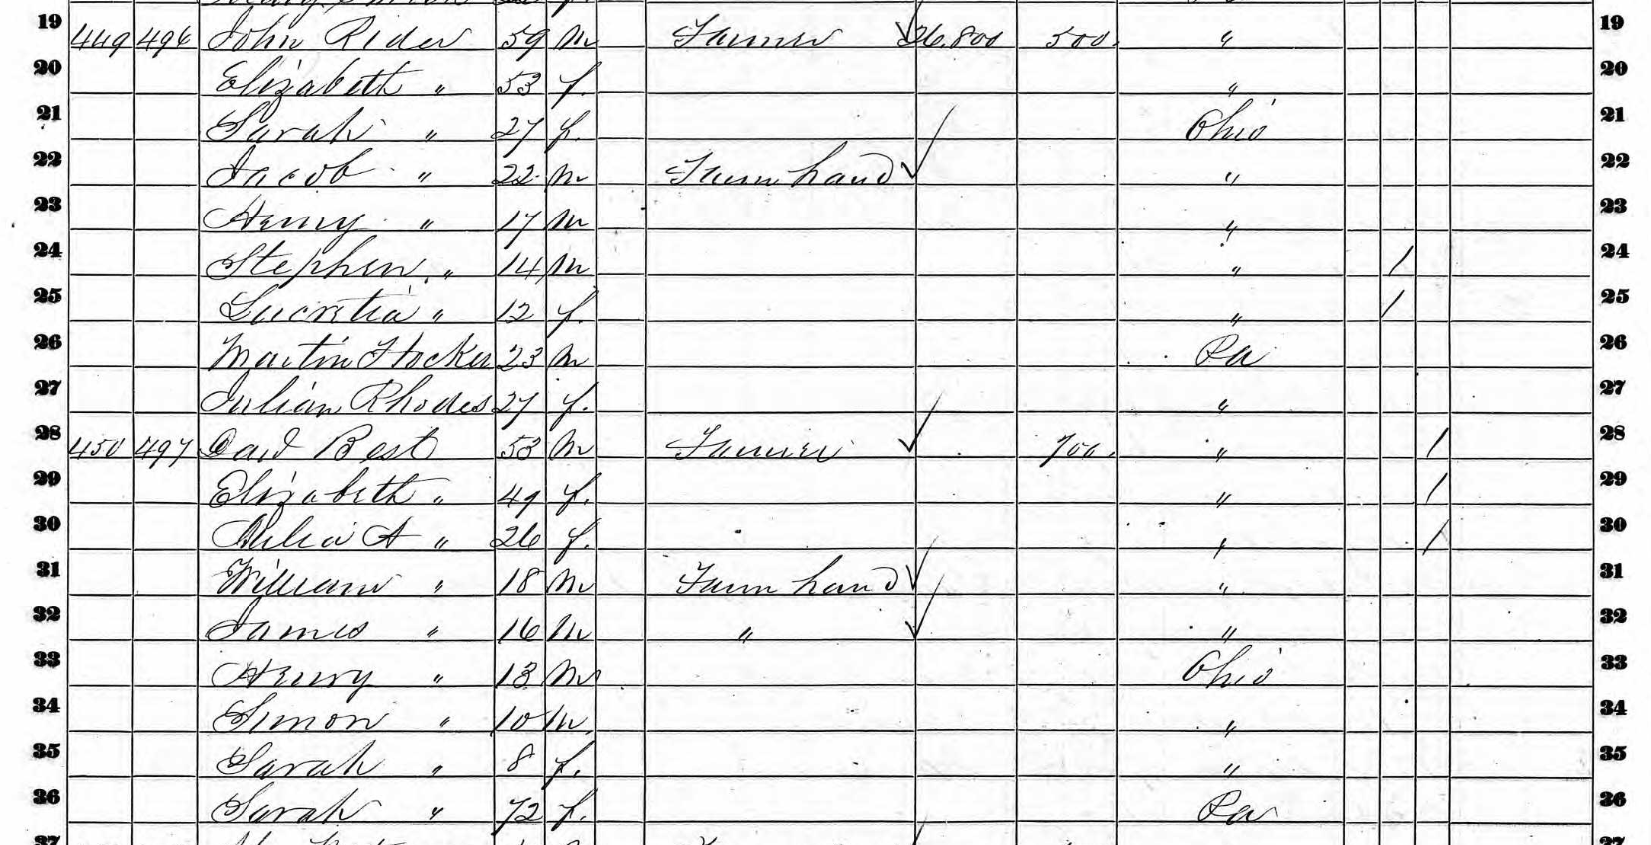 19 449 496 John Rider 59 m Farmer 26.800 500 " 19
20 Elizabeth " 53 f. " 20
21 Sarah " 27 f. Ohio 21
22 Jacob " 22 m Farm hand " 22
23 Henry " 17 m " 23
24 Stephen " 14 m " / 24
25 Lucretia " 12 f. " / 25
26 Martin 23 m Pa 26
27 Julian Rhodes 27 f. " 27
28 450 497 Best 53 m Farmer 700. " / 28
29 Elizabeth " 49 f. " / 29
30 A " 26 f. " / 30
31 William " 18 m Farm hand " 31
32 James " 16 m " " 32
33 Henry " 13 m Ohio 33
34 Simon " 10 m. " 34
35 Sarah " 8 f. " 35
36 Sarah " 72 f. Pa 36
37 37